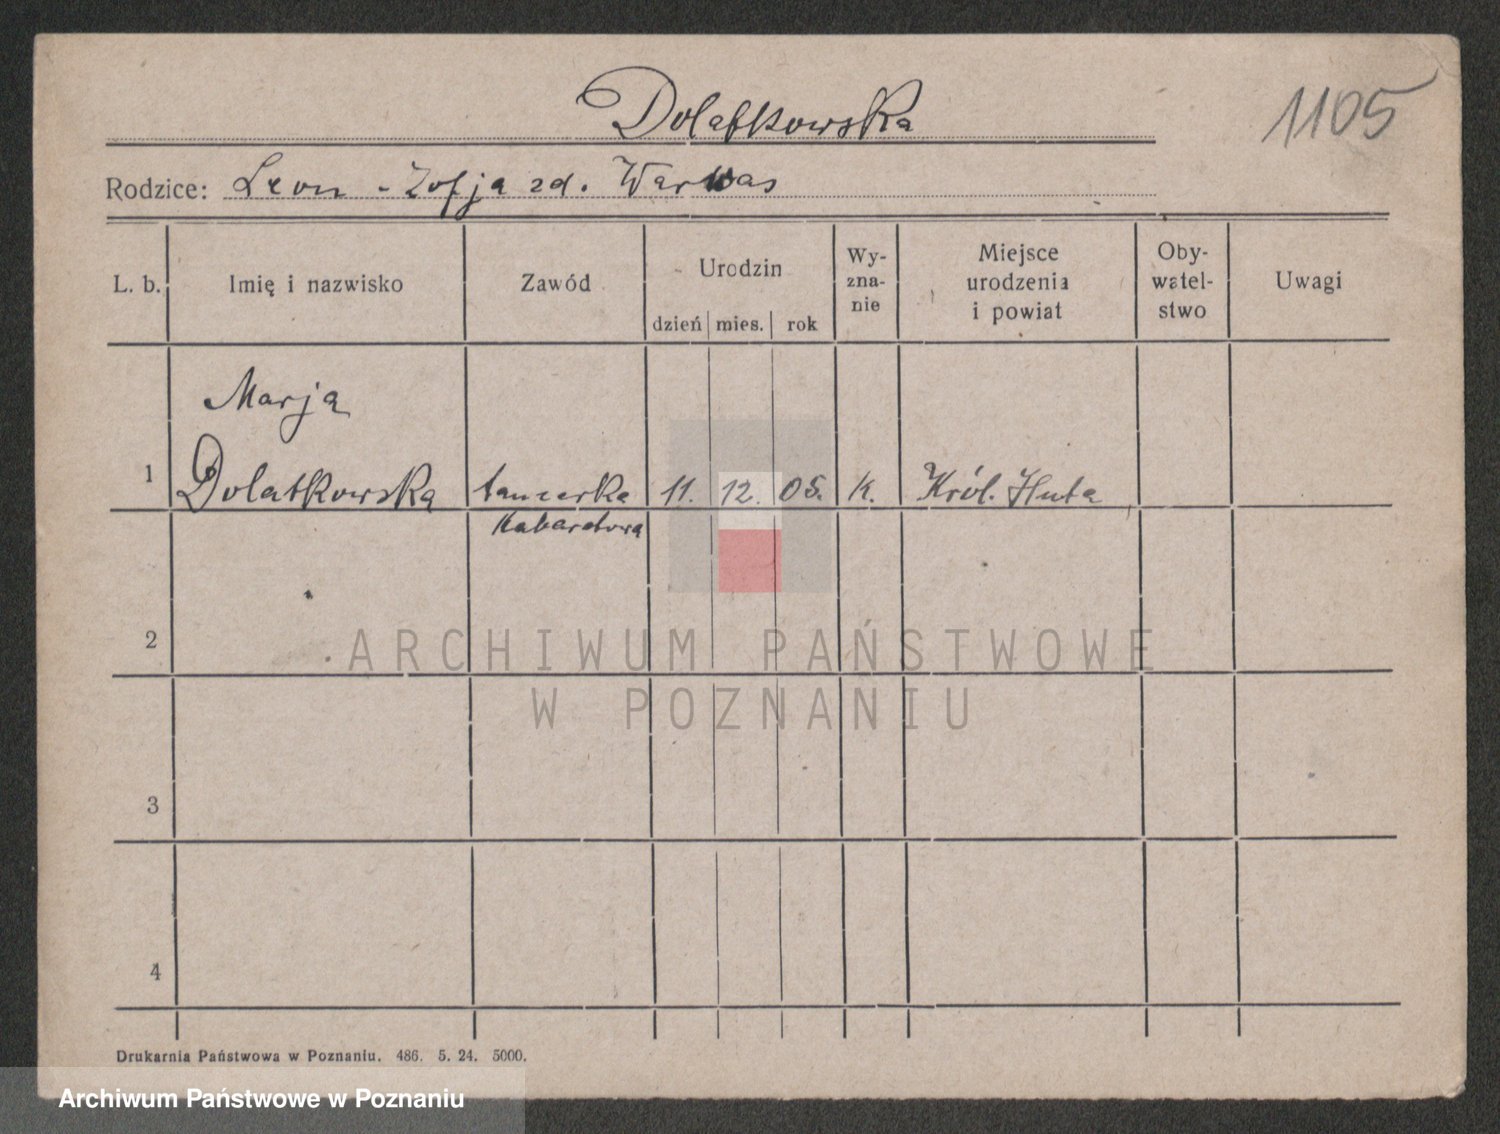 Dolatkowska
1105
Rodzice: Leon - Zofja zd. Warwas
L. b. Imię i nazwisko Zawód Urodzin Wy- Miejsce Oby- Uwagi
zna- urodzenia watel-
nie i powiat stwo
dzień mies. rok
Marja
1 Dolatkowska tancerka 11. 12. 05. k. Król. Huta
Kabaretowa
2
ARCHIWUM PAŃSTWOWE
W POZNANIU
3
4
Drukarnia Państwowa w Poznaniu. 486. 5. 24. 5000.
Archiwum Państwowe w Poznaniu